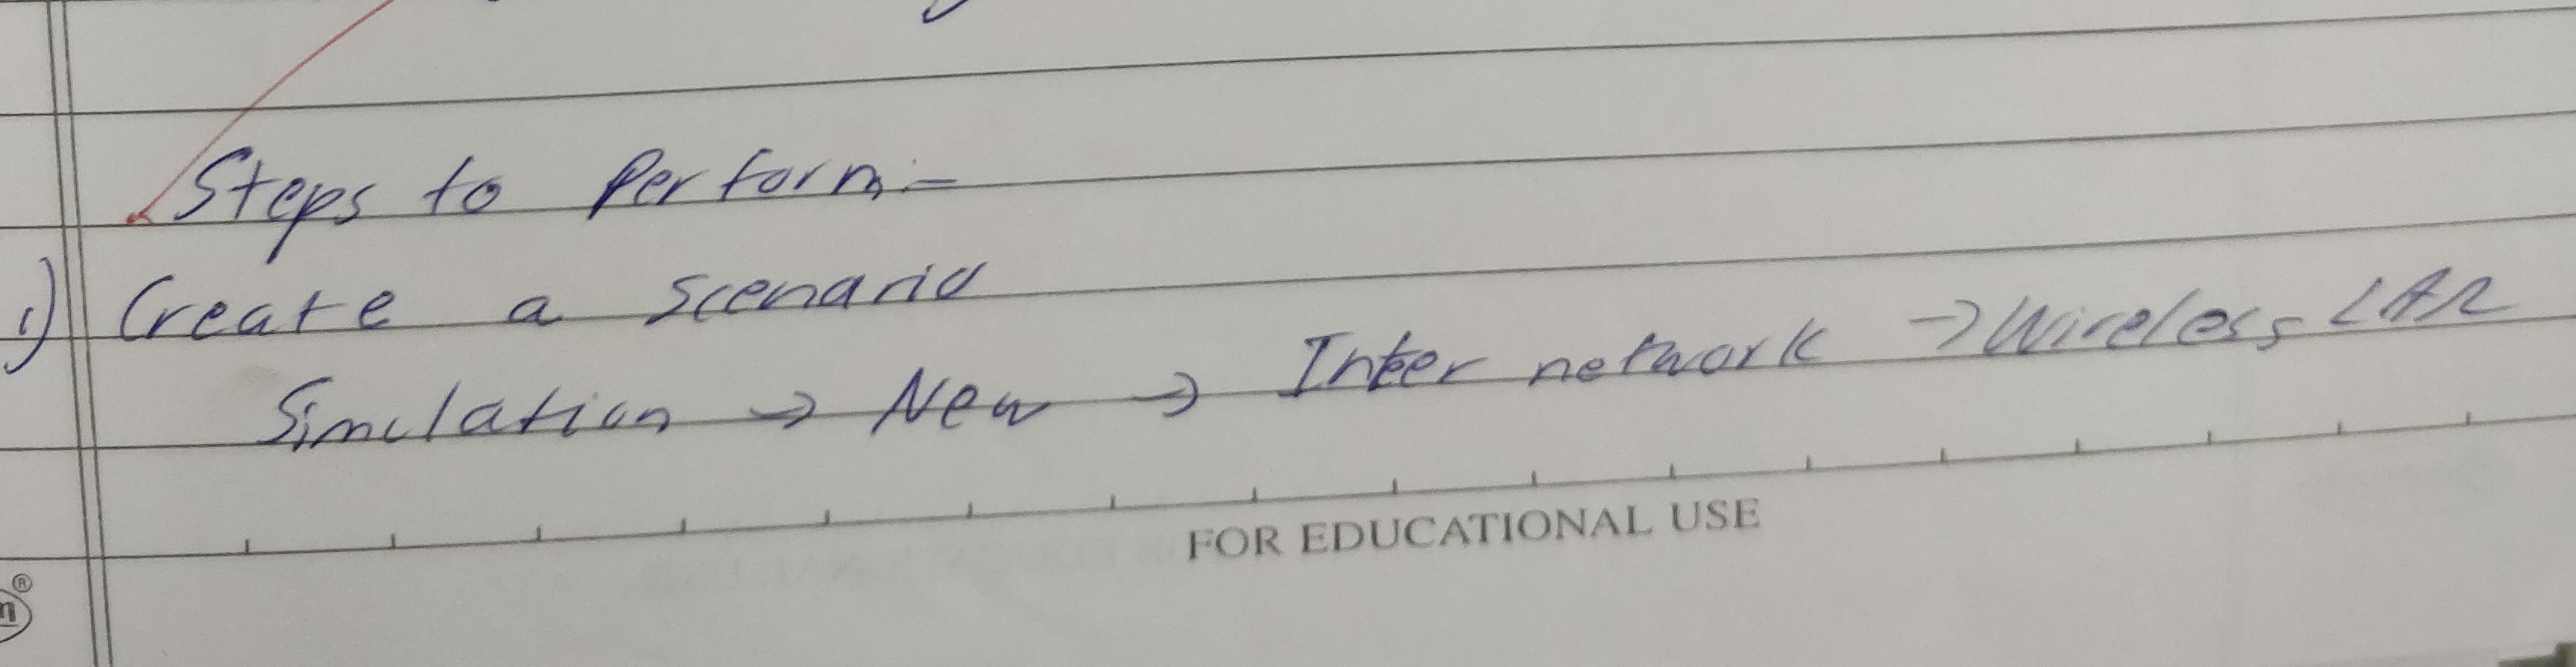 Steps to Perform:-
1) Create a scenario
Simulation → New → Inter network → Wireless LAN
FOR EDUCATIONAL USE